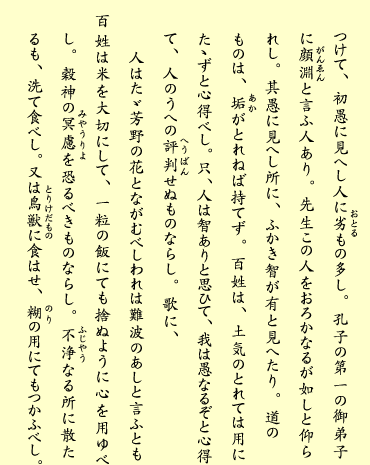 つけて、初愚に見へし人に劣もの多し。孔子の第一の御弟子
おとる
に顔淵と言ふ人あり。先生この人をおろかなるが如しと仰ら
がんゑん
れし。其愚に見へし所に、ふかき智が有と見へたり。道の
ものは、垢がとれねば持てず。百姓は、土気のとれては用に
あか
たゝずと心得べし。只、人は智ありと思ひて、我は愚なるぞと心得
て、人のうへの評判せぬものならし。歌に、
へうばん
人はたゞ芳野の花とながむべしわれは難波のあしと言ふとも
百姓は米を大切にして、一粒の飯にても捨ぬように心を用ゆべ
し。穀神の冥慮を恐るべきものならし。不浄なる所に散た
みやうりよ
ふじやう
るも、洗て食べし。又は鳥獣に食はせ、糊の用にてもつかふべし。
とりけだもの
のり